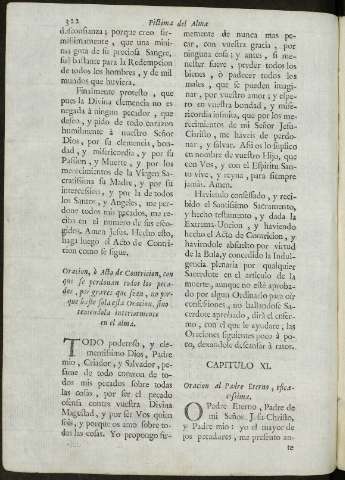 322
Píctima del Alma
desconfianza; porque creo fir-
missimamente, que una mini-
ma gota de su preciosa Sangre,
fuè bastante para la Redempcion
de todos los hombres, y de mil
mundos que huviera.
Finalmente protesto, que
pues la Divina clemencia no es
negada à ningun pecador, que
deseo, y pido de todo corazon
humilmente à nuestro Señor
Dios, por su clemencia, bon-
dad, y misericordia, y por su
Passion, y Muerte, y por los
merecimientos de la Virgen Sa-
cratissima su Madre, y por su
intercession, y por la de todos
los Santos, y Angeles, me per-
done todos mis pecados, me re-
ciba en el numero de sus esco-
gidos. Amen Jesus. Hecho esto,
haga luego el Acto de Contri-
cion como se sigue.
Oracion, ò Acto de Contricion, con
que se perdonan todos los peca-
dos, por graves que sean, no por-
que baste sola esta Oracion, sino
teniendola interiormente
en el alma.
TODO poderoso, y cle-
mentissimo Dios, Padre
mio, Criador, y Salvador, pe-
same de todo corazon de to-
dos mis pecados sobre todas
las cosas, por ser el pecado
ofensa contra vuestra Divina
Magestad, y por ser Vos quien
sois, y porque os amo sobre to-
das las cosas. Yo propongo fir-
memente de nunca mas pe-
car, con vuestra gracia, por
ninguna cosa; y antes, si me-
nester fuere, perder todos los
bienes, ò padecer todos los
males, que se pueden imagi-
nar, por vuestro amor; y espe-
ro en vuestra bondad, y mise-
ricordia infinita, que por los me-
recimientos de mi Señor Jesu-
Christo, me haveis de perdo-
nar, y salvar. Assi os lo suplico
en nombre de vuestro Hijo, que
con Vos, y con el Espiritu San-
to vive, y reyna, para siempre
jamàs. Amen.
Haviendo confessado, y reci-
bido el Santissimo Sacramento,
y hecho testamento, y dada la
Extrema-Uncion, y haviendo
hecho el Acto de Contricion, y
haviendole absuelto por virtud
de la Bula, y concedido la Indul-
gencia plenaria por qualquier
Sacerdote en el articulo de la
muerte, aunque no estè aproba-
do por algun Ordinario para oir
confessiones, no hallandose Sa-
cerdote aprobado, dirà el enfer-
mo, con el que le ayudare, las
Oraciones siguientes poco à po-
co, dexandole descansar à ratos.
CAPITULO XI.
Oracion al Padre Eterno, efica-
cissima.
O Padre Eterno, Padre de
mi Señor Jesu-Christo,
y Padre mio: yo el mayor de
los pecadores, me presento an-
te